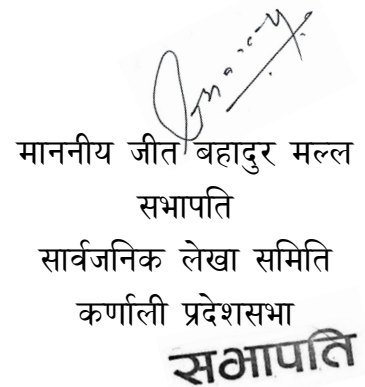 माननीय जीत बहादुर मल्ल
सभापति
सार्वजनिक लेखा समिति
कर्णाली प्रदेशसभा
सभापति